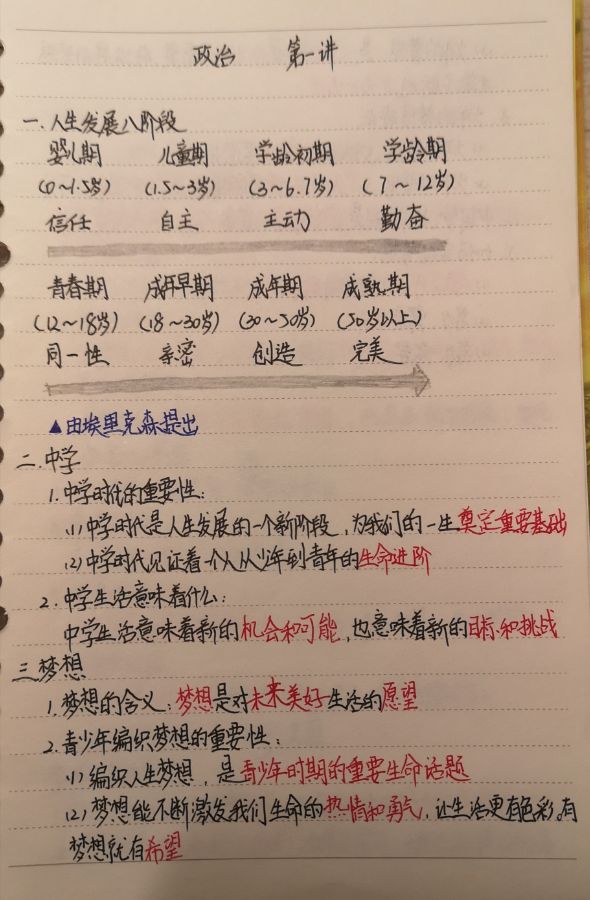 政治 第一讲
一.人生发展八阶段
婴儿期 儿童期 学龄初期 学龄期
(0~1.5岁) (1.5~3岁) (3~6.7岁) (7~12岁)
信任 自主 主动 勤奋
青春期 成年早期 成年期 成熟期
(12~18岁) (18~30岁) (30~50岁) (50岁以上)
同一性 亲密 创造 完美
▲由埃里克森提出
二.中学
1.中学时代的重要性:
(1)中学时代是人生发展的一个新阶段,为我们的一生奠定重要基础
(2)中学时代见证着一个人从少年到青年的生命进阶
2.中学生活意味着什么:
中学生活意味着新的机会和可能,也意味着新的目标和挑战
三.梦想
1.梦想的含义:梦想是对未来美好生活的愿望
2.青少年编织梦想的重要性:
(1)编织人生梦想,是青少年时期的重要生命话题
(2)梦想能不断激发我们生命的热情和勇气,让生活更有色彩.有
梦想就有希望